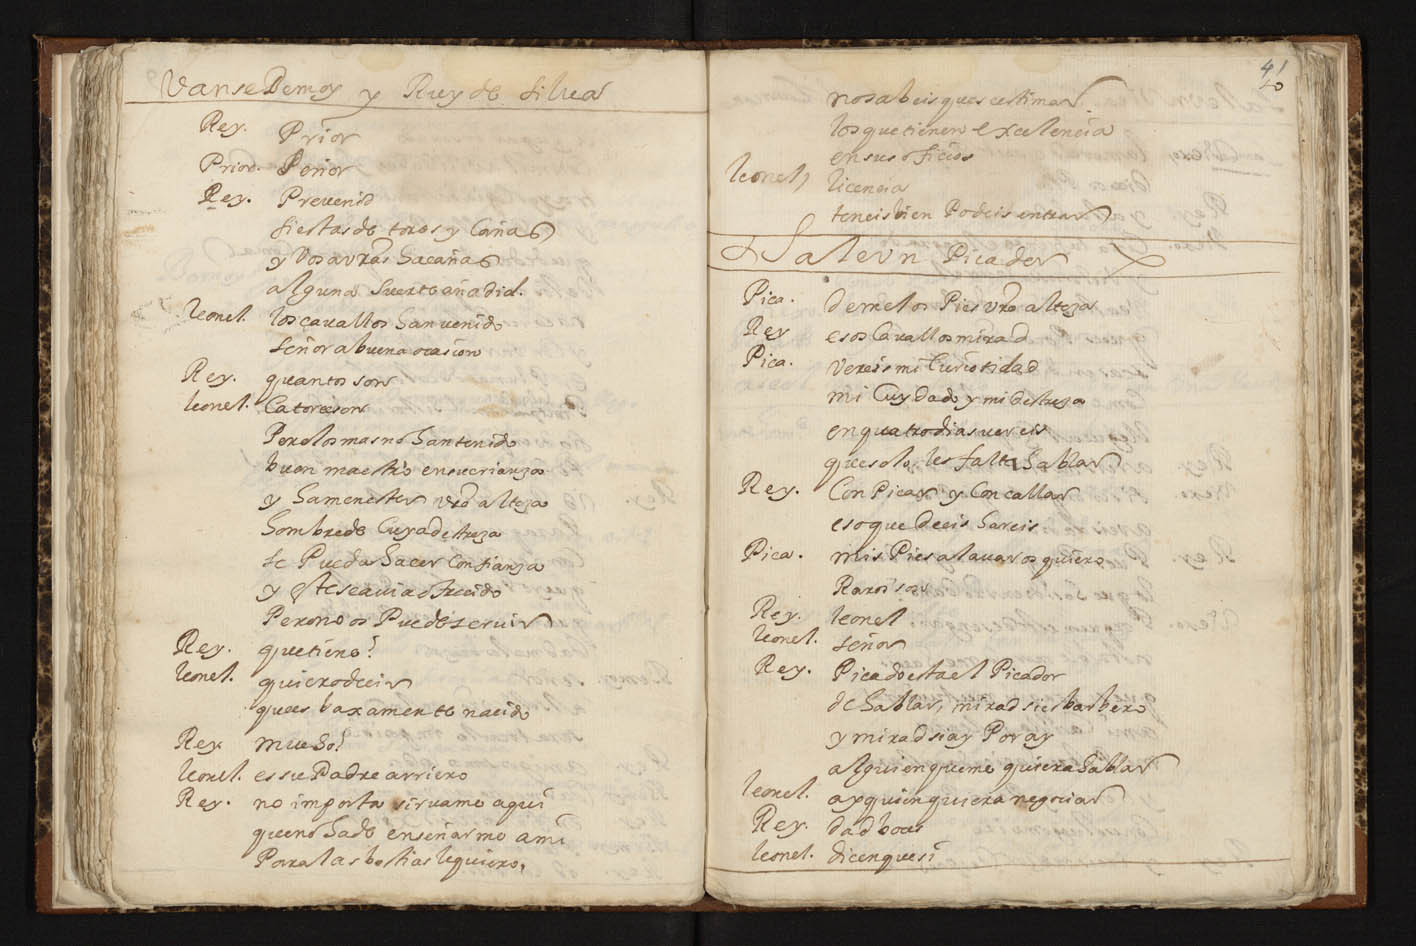 Vanse Demoy y Ruy de Silua
Rey. Prior
Prior. Señor
Rey. Prevenid
fiestas de toros y Cañas
y Vos avras hacañas
alguna Suerte añadid.
leonel. los cauallos han uenido
señor a buena ocasion
Rey. quantos son
leonel. Catorce son
Pero los mas no han tenido
buen maestro en su crianza
y ha menester vrâ alteza
hombre de Cuya destreza
se Pueda hacer Confianza
y este auia ofrecido
Pero no os Puede seruir
Rey. que tiene?
leonel. quiero decir
que es baxamente nacido
Rey. mucho?
leonel. es su Padre arriero
Rey. no importa siruame aqui
que no ha de enseñarme a mi
Para las bestias le quiero,
41
no sabeis que se estiman
los que tienen excelencia
en sus oficios
leonel, licencia
teneis bien Podeis entrar
Sale vn Picador
Pica. deme los Pies vrâ alteza
Rey esos Cauallos mirad
Pica. vereis mi Curiosidad
mi Cuydado y mi destreza
en quatro dias vereis
que solo les falta hablar
Rey. Con Picar y Con callar
eso que decis hareis
Pica. mis Pies alauaros quiero
Raros son
Rey. leonel
leonel. señor
Rey. Picado esta el Picador
de hablar, mirad si es barbero
y mirad si ay Por ay
alguien que me quiera hablar
leonel. ay quien quiera negociar
Rey. dad voces
leonel. dicen que si